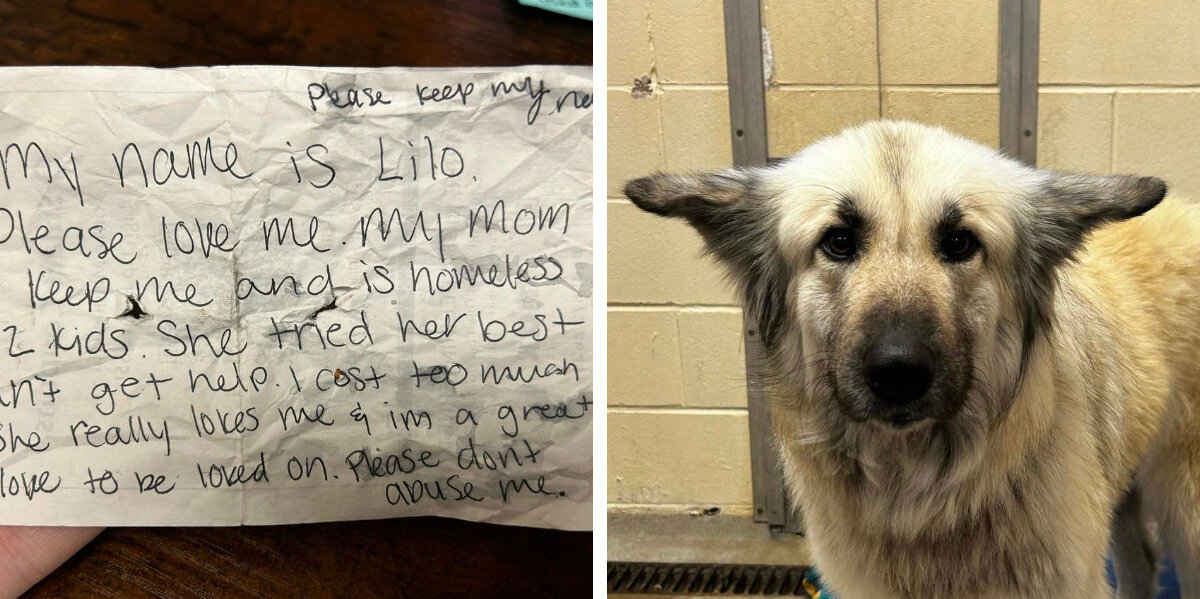 Please keep my
My name is Lilo.
Please love me. My Mom
keep me and is homeless
2 kids. She tried her best
get help. I cost too much
She really loves me & im a great
love to be loved on. Please dont
abuse me.